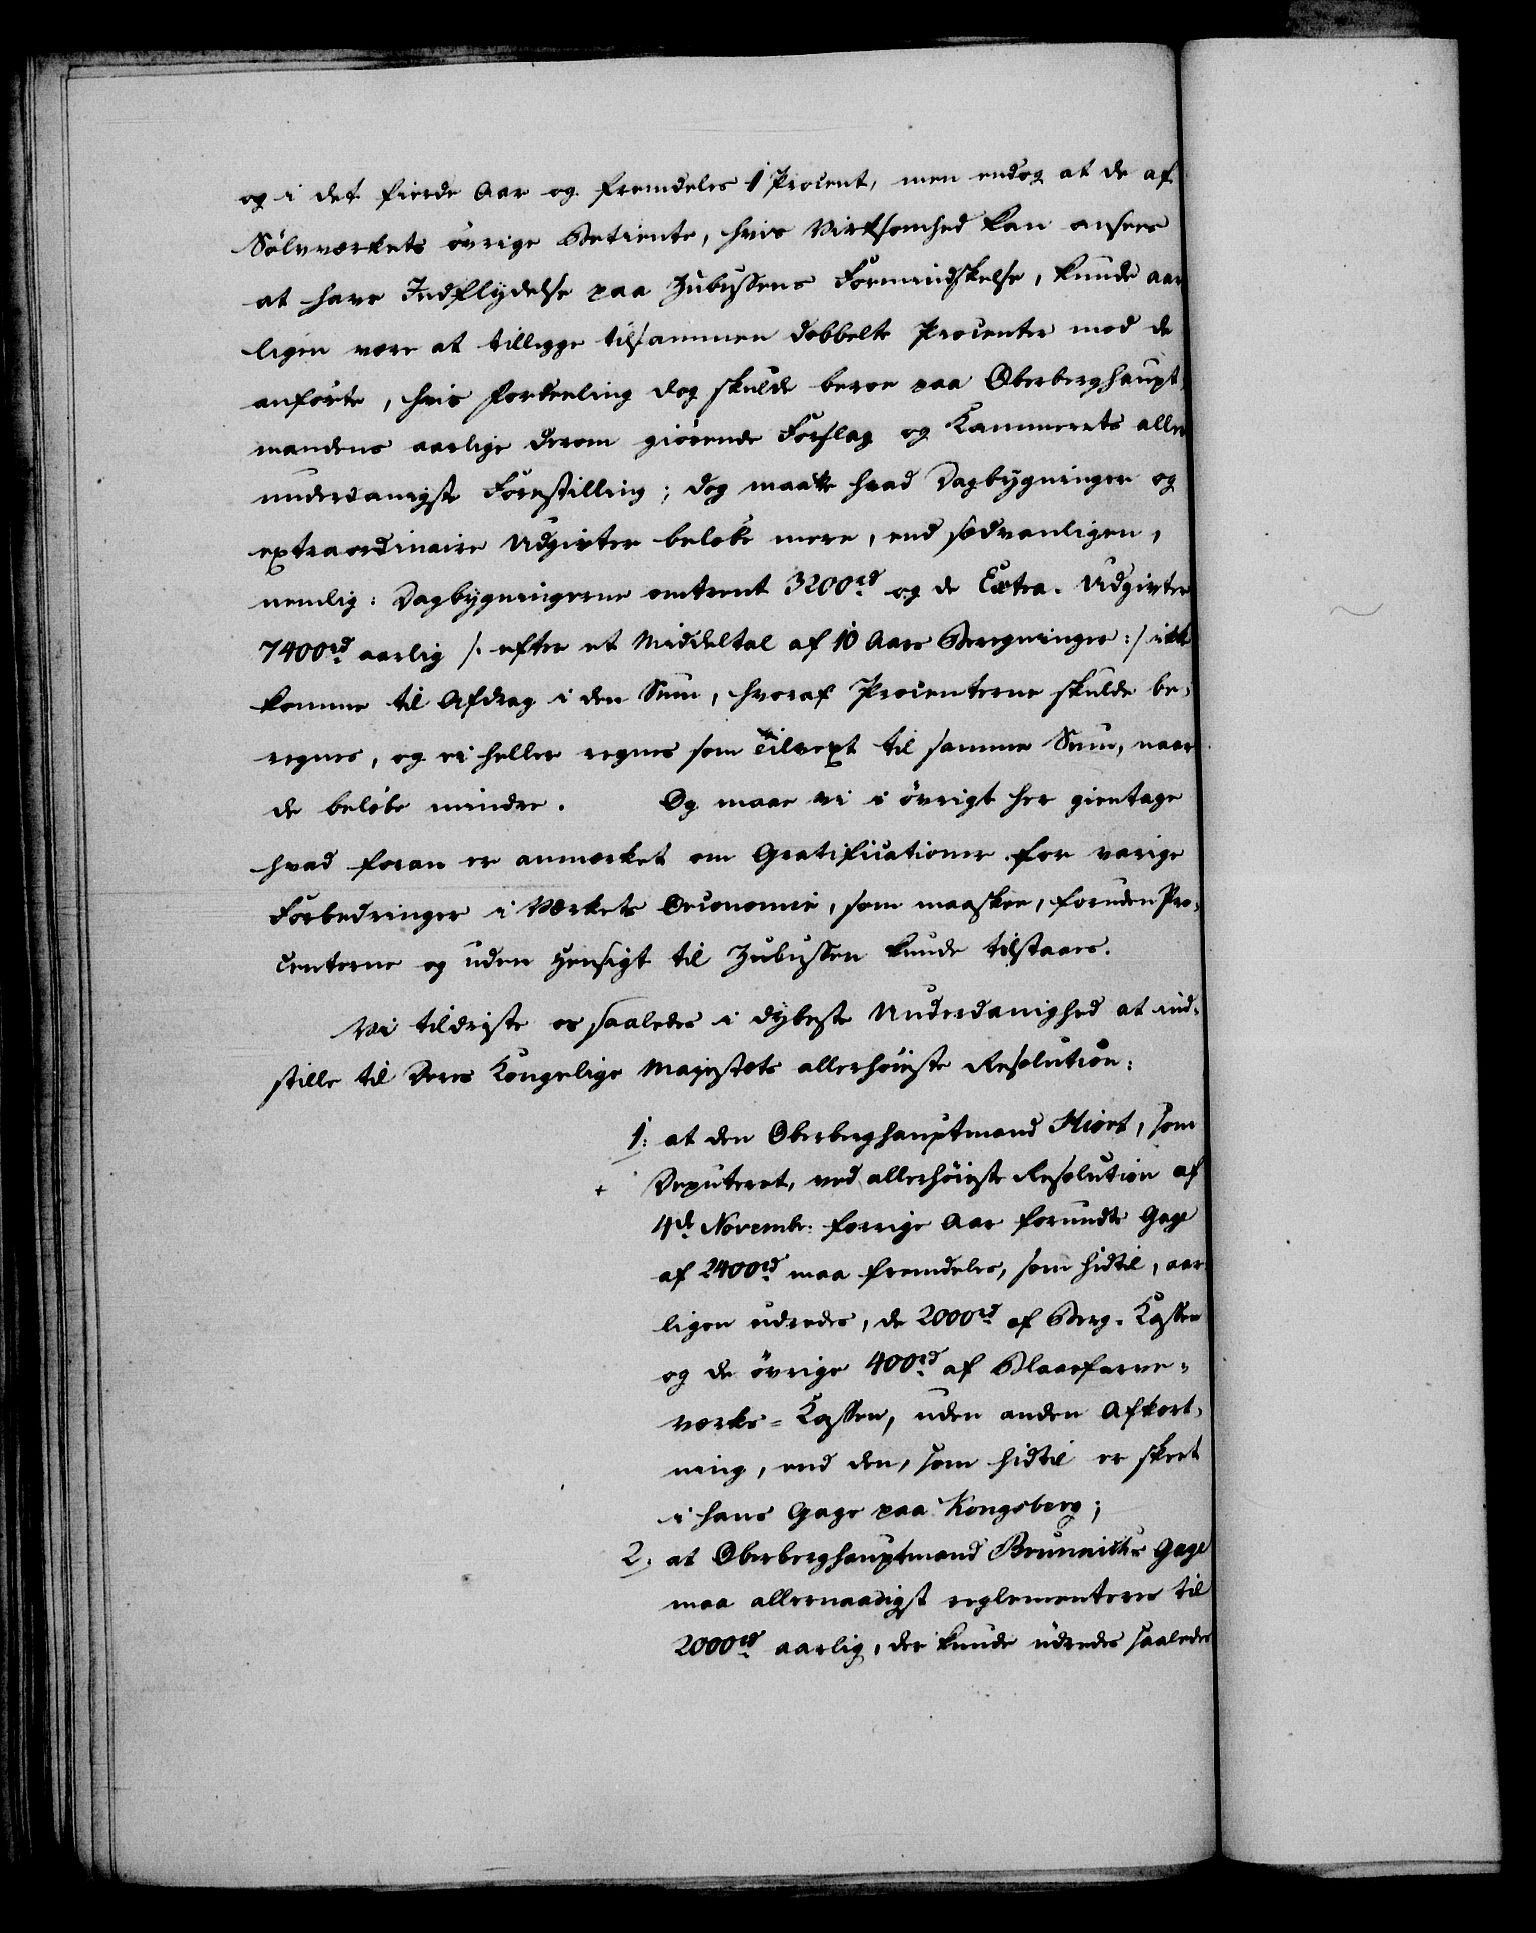 og i det fierde Aar og fremdeles 1 Procent, men endog at de af
Sölvværkets övrige Betiente, hvis Virksomhed kan ansees
at have Indflydelse paa Zubussens Formindskelse, kunde aar
ligen være at tillegge tilsammen dobbelte Procenter mod de
anförte, hvis Fordeeling dog skulde beroe paa Oberberghaupt,
mandens aarlige derom giörende Forslag og Kammerets aller
underdanigste Forestilling; dog maatte hvad Dagbygninger og
extraordinaire Udgivter belöbe mere, end sædvanligen,
nemlig: Dagbygningerne omtrent 3200rd og de Extra. Udgivter
7400rd aarlig /: efter et Middeltal af 10 Aars Beregninger :/ ikke
komme til Afdrag i den Sum, hvoraf Procenterne skulde be,
regnes, og ei heller regnes som Tilvext til samme Sum, naar
de belöbe mindre. Og maae vi i övrigt her gientage
hvad foran er anmærket om Gratificationer for varige
Forbedringer i Værkets Oeconomie, som maaskee, foruden Pro,
centerne og uden Hensigt til Zubussen kunde tilstaaes.
Vi tildriste os saaledes i dybeste Underdanighed at ind,
stille til Deres Kongelige Majestæts allerhöieste Resolution:
1: at den Oberberghauptmand Hiort, som
+ Deputeret, ved allerhöieste Resolution af
4de Novembr: forrige Aar forundte Gage
af 2400rd maa fremdeles, som hidtil, aar,
ligen udredes, de 2000rd af Berg-Kassen
og de övrige 400rd af Blaafarve-
værks-Kassen, uden anden Afkort,
ning, end den, som hidtil er skeet
i hans Gage paa Kongsberg;
2. at Oberberghauptmand Brünnichs Gage
maa allernaadigst reglementeres til
2000rd aarlig, der kunde udredes saaledes